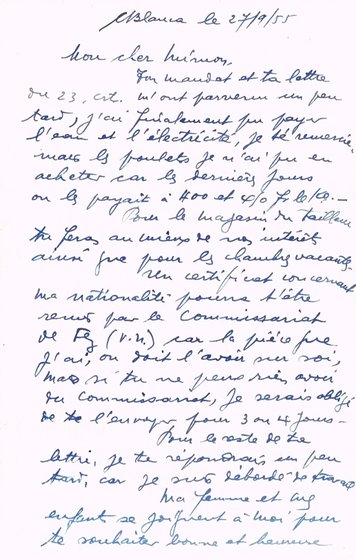 CBlanca le 27/9/55
Mon cher Mimon,
Ton mandat et ta lettre
du 23, crt. m'ont parvenu un peu
tard, j'ai finalement pu payer
l'eau et l'électricité, je te remercie
mais les poulets je n'ai pu en
acheter car les derniers jours
on les payait à 400 et 410 frs le kg. -
Pour le magasin du tailleur
tu feras au mieux de nos intérêts
ainsi que pour les chambres vacantes -
Un certificat concernant
ma nationalité pourra t'être
remis par le Commissariat
de Fez (V.N.) car la pièce que
j'ai, on doit l'avoir sur soi,
mais si tu ne peux rien avoir
du Commissariat, je serais obligé
de te l'envoyer pour 3 ou 4 jours -
Pour le reste de ta
lettre, je te répondrais un peu
tard, car je suis débordé de travail
Ma femme et les
enfants se joignent à moi pour
te souhaiter bonne et heureuse